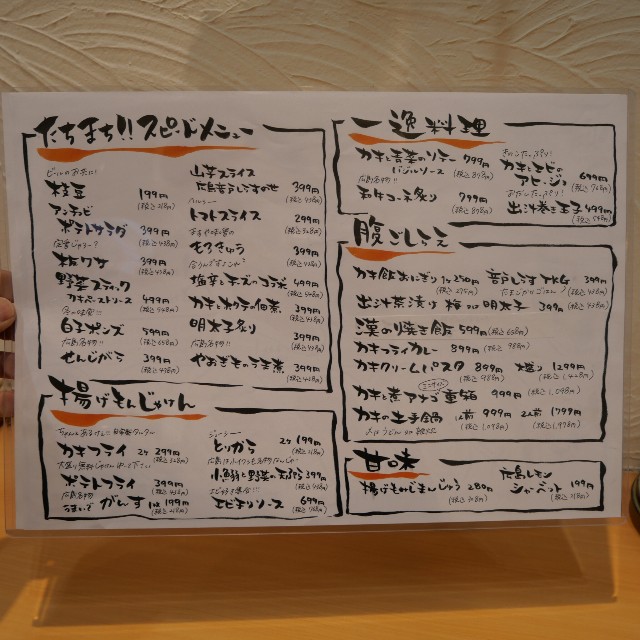 たちまち!!スピードメニュー
ビールのお共に!
枝豆 199円
(税込218円)
アンデッビ
ポテトサラダ 399円
(税込438円)
板ワサ 399円
(税込438円)
野菜スティック
カキペーストソース 499円
(税込548円)
白子ポンズ 599円
広島名物!! (税込658円)
せんじがら 399円
(税込438円)
山芋スライス
広島音戸しらすのせ 399円
(税込438円)
トマトスライス 299円
(税込328円)
もろきゅう 399円
(税込438円)
塩辛とチーズのコラボ
(税込548円)
カキとホタテの佃煮
(税込438円)
明太子炙り 399円
広島名物!! (税込438円)
やおぎものうま煮 399円
(税込438円)
揚げもんじゃけん
カキフライ 2ケ 299円
(税込328円)
ポテトフライ 399円
広島名物 (税込438円)
うまいで がんす 1枚 199円
(税込218円)
ジューシー
とりから 2ケ 199円
(税込218円)
小魚と野菜の天ぷら 399円
(税込438円)
エビチリソース 699円
(税込768円)
一逸料理
カキと青菜のソテー 799円
バジルソース (税込878円)
広島名物!!
和牛コーネ炙り 799円
(税込878円)
カキとエビの
アヒージョ 699円
(税込768円)
おだしたっぷり!
出汁巻き玉子 499円
(税込548円)
腹ごしらえ
カキ飯おにぎり 1ケ 250円
(税込275円)
音戸しらすTKG 399円
たまごかけごはん (税込438円)
出汁茶漬け 梅 or 明太子 399円
(税込438円)
漢の焼き飯 599円 (税込658円)
カキフライカレー 899円 (税込988円)
カキクリームパスタ 899円 大盛り 1299円
(税込988円) (税込1,428円)
カキと煮アナゴ重箱 999円
(税込1,098円)
カキの土手鍋 1人前 999円 2人前 1799円
おはうどん or 雑炊 (税込1,098円) (税込1,978円)
甘味
揚げもみじまんじゅう 280円
(税込308円)
広島レモン
シャーベット 199円
(税込218円)